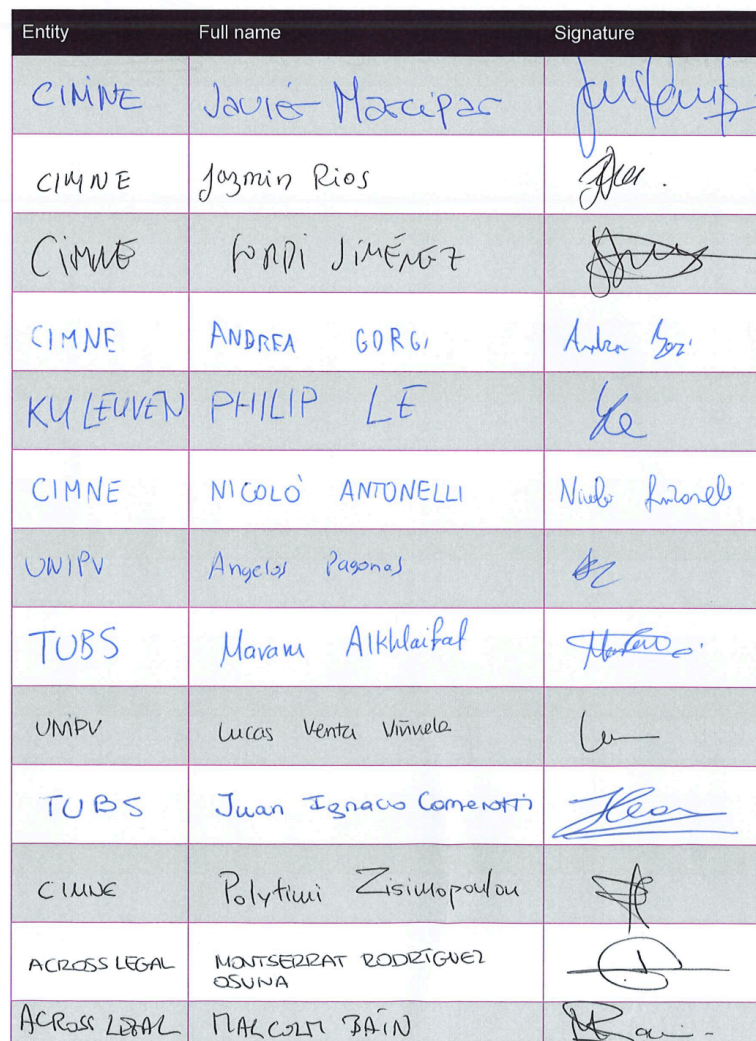 Entity Full name Signature
CIMNE Javier Marcipar
CIMNE Jazmin Rios
CIMNE JORDI JIMÉNEZ
CIMNE ANDREA GORGI Andrea Gorgi
KU LEUVEN PHILIP LE Le
CIMNE NICOLÒ ANTONELLI Nicolò Antonelli
UNIPV Angelos Pagonas
TUBS Maram Alkhlaifat
UNIPV Lucas Venta Viñuela
TUBS Juan Ignacio Camerotti
CIMNE Polytimi Zisimopoulou
ACROSS LEGAL MONTSERRAT RODRÍGUEZ
OSUNA
ACROSS LEGAL MALCOLM BAIN